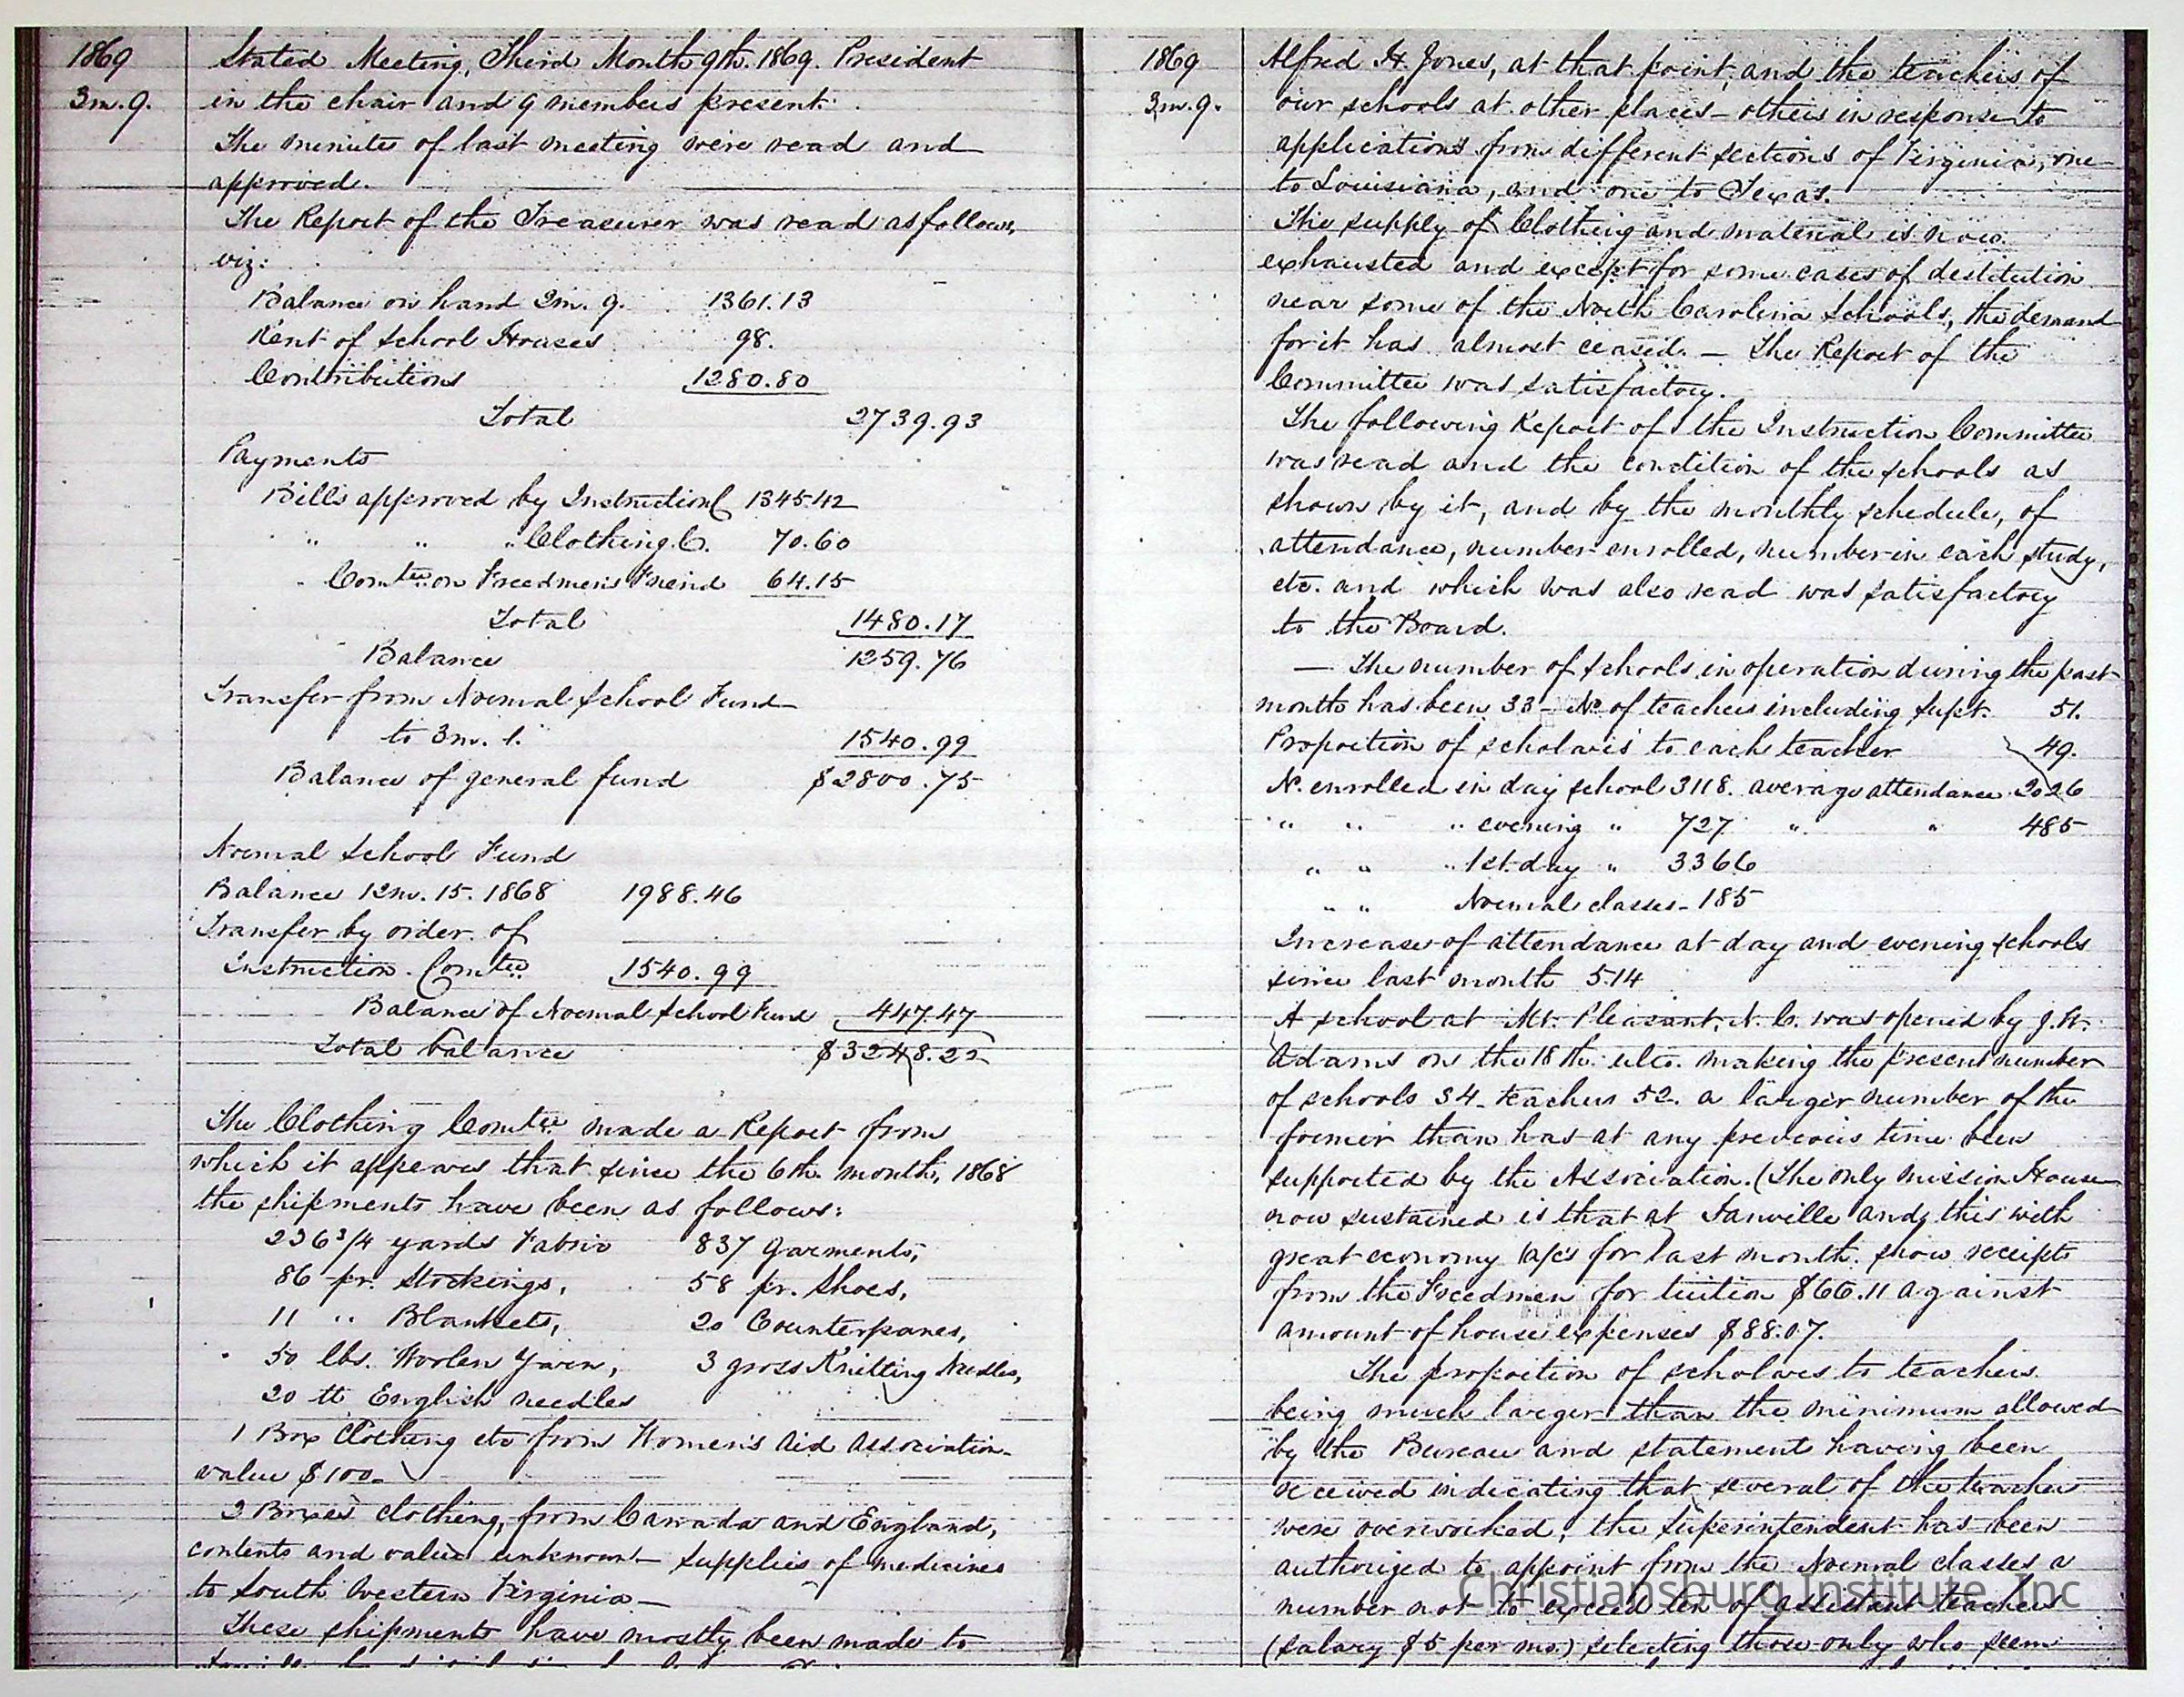 1869
3m.9.
Stated Meeting, Third Month 9th. 1869. President
in the chair and 9 members present.
The minutes of last meeting were read and
approved.
The Report of the Treasurer was read as follows,
viz:
Balance on hand 2m. 9. 1361.13
Rent of School Houses 98.
Contributions 1280.80
Total 2739.93
Payments
Bills approved by Instruction C 1345.42
" " " Clothing C. 70.60
" Comtee on Freedmen's Friend 64.15
Total 1480.17
Balance 1259.76
Transfer from Normal School Fund
to 3m. 1. 1540.99
Balance of general fund $2800.75
Normal School Fund
Balance 12m. 15. 1868 1988.46
Transfer by order of
Instruction Comtee 1540.99
Balance of Normal School Fund 447.47
Total balance $3248.22
The Clothing Comtee made a Report from
which it appears that since the 6th. month, 1868
the shipments have been as follows:
236 3/4 yards Fabric 837 Garments,
86 pr. Stockings, 58 pr. Shoes,
11 " Blankets, 20 Counterpanes,
50 lbs. Woolen Yarn, 3 gross Knitting Needles,
20 M English needles
1 Box Clothing etc from Women's Aid Association
value $100.
2 Boxes clothing, from Canada and England,
contents and value unknown — supplies of medicines
to South Western Virginia —
These shipments have mostly been made to
1869
3m.9.
Alfred H. Jones, at that point, and the teachers of
our schools at other places — others in response to
applications from different sections of Virginia, one
to Louisiana, and one to Texas.
The supply of Clothing and material is now
exhausted and except for some cases of destitution
near some of the North Carolina Schools, the demand
for it has almost ceased. — The Report of the
Committee was satisfactory.
The following Report of the Instruction Committee
was read and the condition of the schools as
shown by it, and by the monthly schedule, of
attendance, number enrolled, number in each study,
etc. and which was also read was satisfactory
to the Board.
— The number of schools in operation during the past
month has been 33 — No. of teachers including Supt. 51.
Proportion of scholars to each teacher 49.
N. enrolled in day school 3118. average attendance 2026
" " " evening " 727 " " 485
" " " 1st. day " 3366
" " Normal classes — 185
Increase of attendance at day and evening schools
since last month 514
A school at Mt. Pleasant, N. C. was opened by J. W.
Adams on the 18th. ulto. making the present number
of schools 34 — teachers 52. a larger number of the
former than has at any previous time been
supported by the Association. (The only mission House
now sustained is that at Danville and this with
great economy a/cs for last month show receipts
from the Freedmen for tuition $66.11 against
amount of house expenses $88.07.
The proportion of scholars to teachers
being much larger than the minimum allowed
by the Bureau and statement having been
received indicating that several of the teachers
were overworked, the Superintendent has been
authorized to appoint from the Normal classes a
number not to exceed ten of assistant teachers
(salary $5 per mo.) selecting those only who seem
Christiansburg Institute, Inc